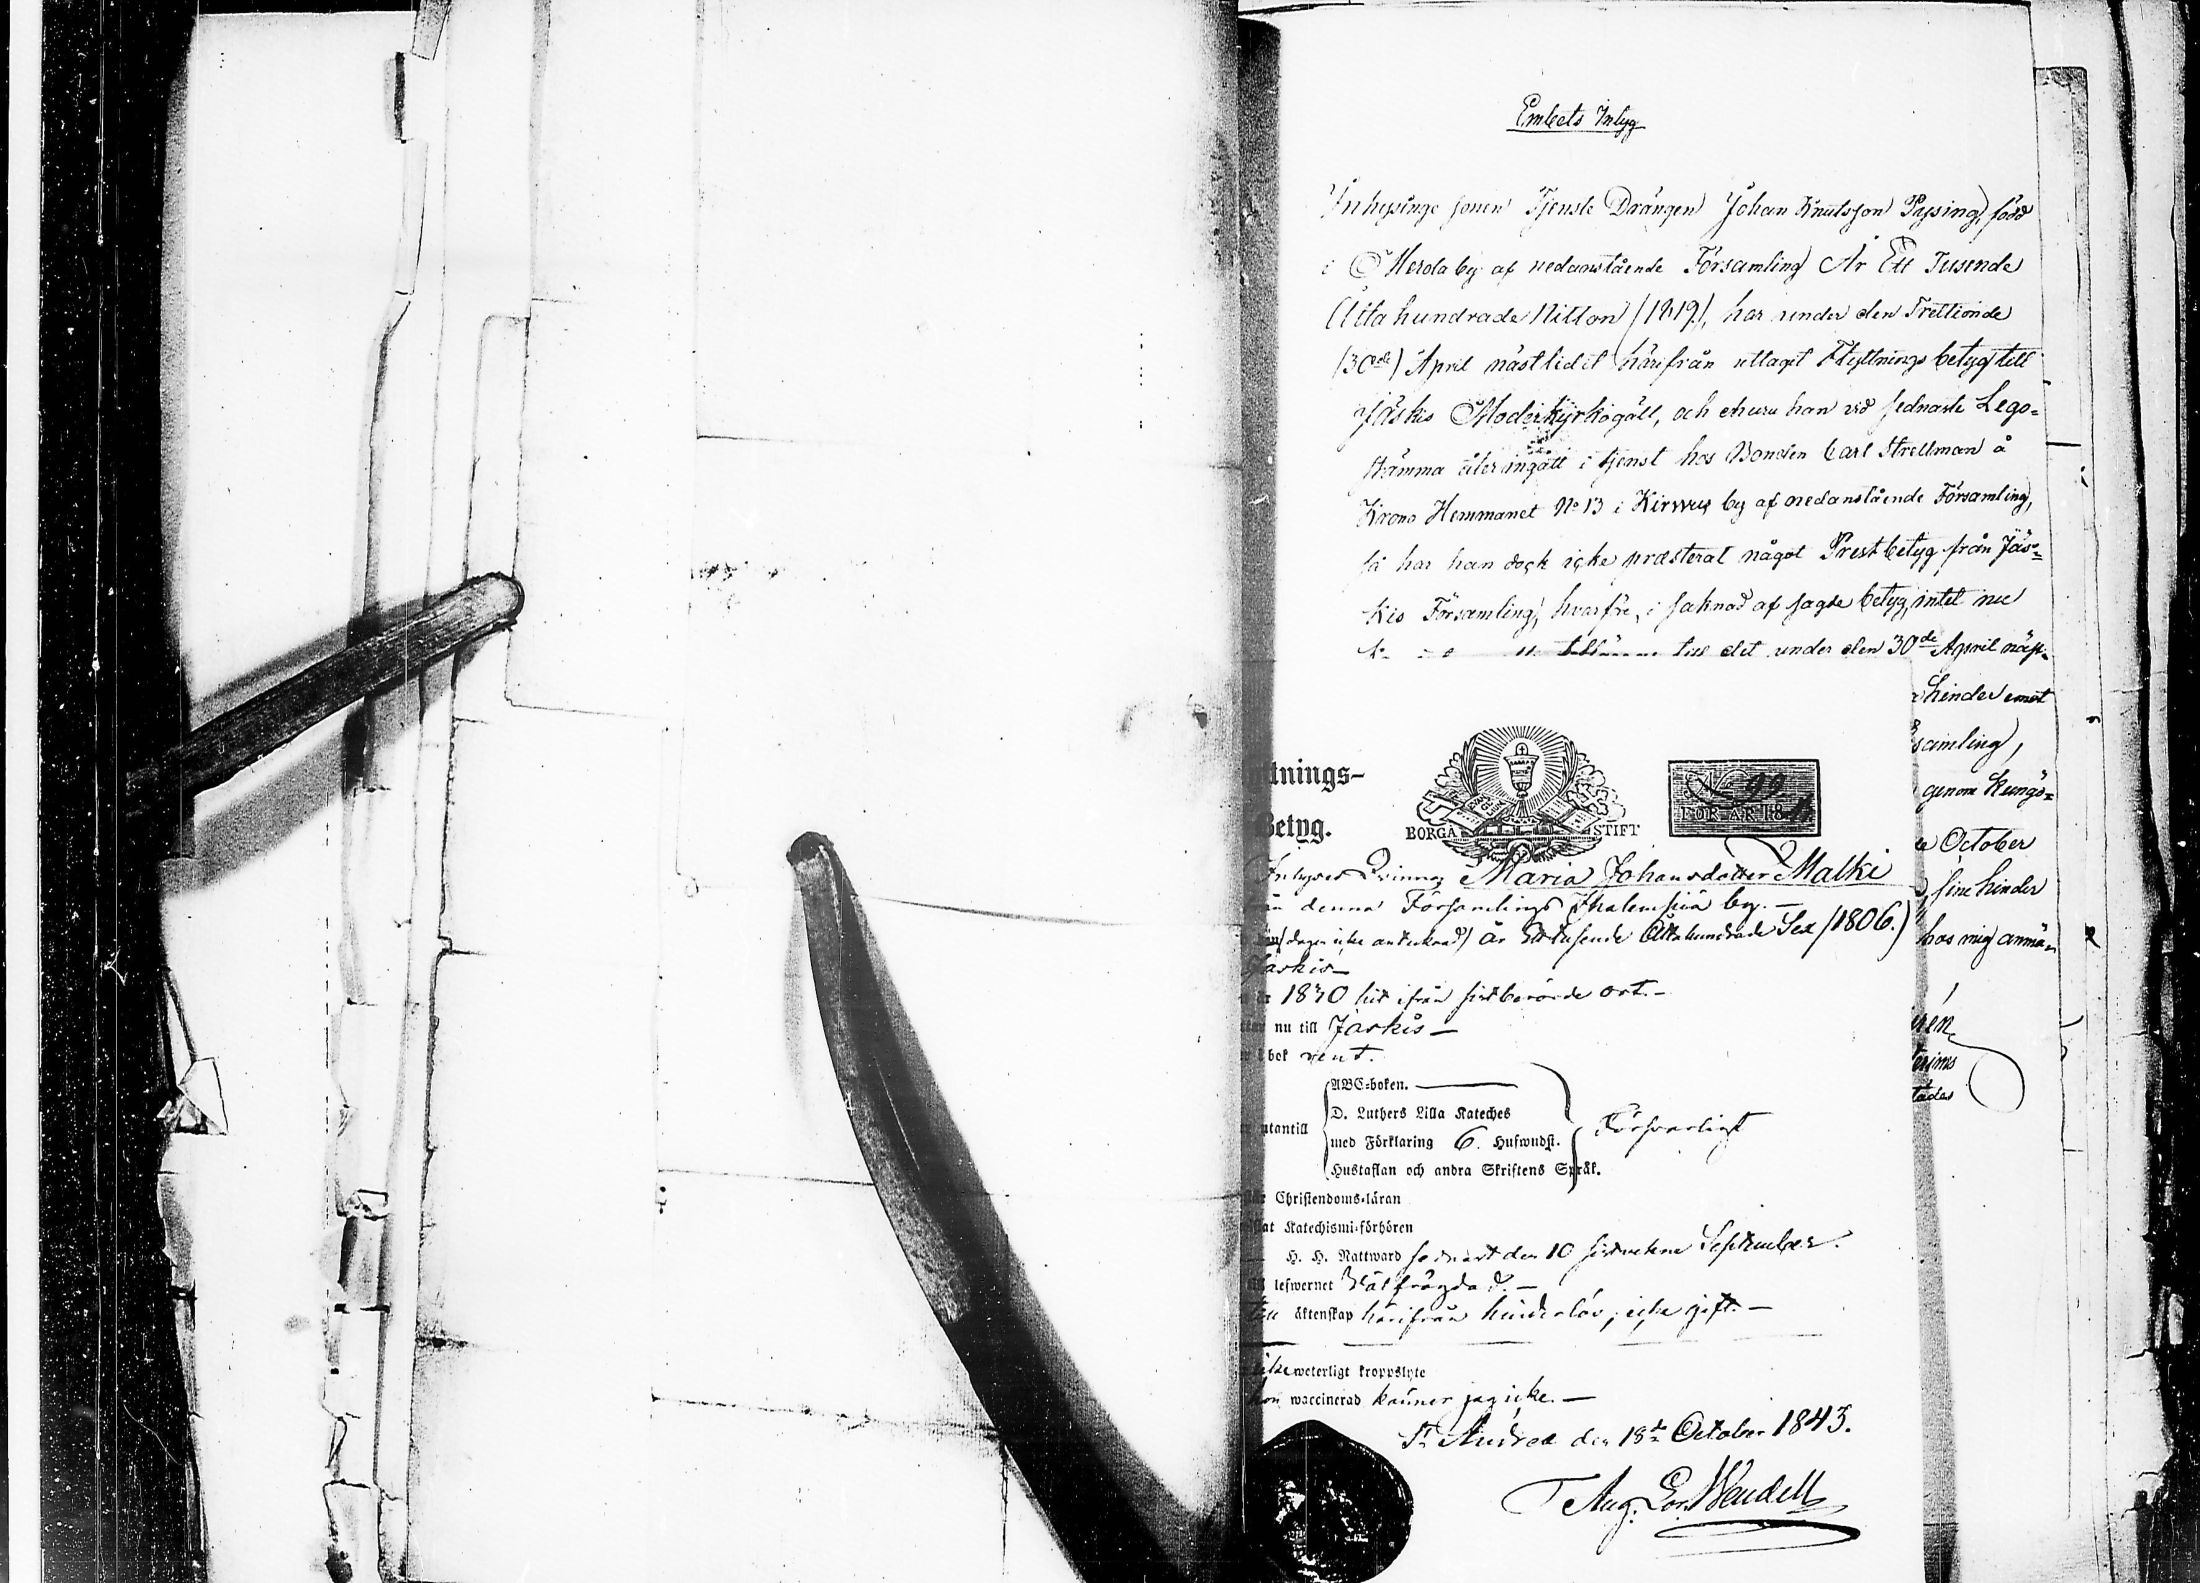 Embets Intyg
Inhysinge sonen Tjenste Drängen Johan Knutsson Pysing, född
i Merola by af nedanstående Församling År Ett Tusende
Åtta hundrade Nitton (1819), har under den Trettionde
(30de) April nästledit härifrån uttaget Flyttnings betyg till
Jäskis Moderkyrkogäll, och ehuru han vid sednaste Lego-
stämma åter ingått i tjenst hos Bonden Carl Strellman å
Krono Hemmanet No 13 i Kirvus by af nedanstående Församling,
så har han dock icke præsterat något Prestbetyg från Jäs-
kis Församling, hvarföre, i saknad af sagde betyg, intet nu
till det under den 30de April näst-
hinder emot
samling,
genom Kungö-
October
sine hinder
hos mig anmä-
ttnings-
Betyg.
BORGÅ STIFT
No 99
FÖR ÅR 18
Inhyses Qvinnan Maria Johansdotter Malki
från denna Församlings by. —
(dagen icke antecknad) år Ett tusende Åtta hundrade Sex (1806.)
Jäskis —
1830 hit ifrån sistberörde ort. —
nu till Jäskis —
bok rent.
utantill
ABC-boken. —
D. Luthers Lilla Kateches
med Förklaring 6. Hufwudst.
Hustaflan och andra Skriftens Språk.
Försvarligt
Christendoms-läran
Katechismi-förhören
H. H. Nattward sednast den 10 sistvekne September.
till lefwernet Välfrägdad. —
till äktenskap härifrån hinderlös, icke gift. —
icke weterligt kroppslyte
hon waccinerad känner jag icke. —
St Andreæ den 18de October 1843.
Aug. Lor. Wendell